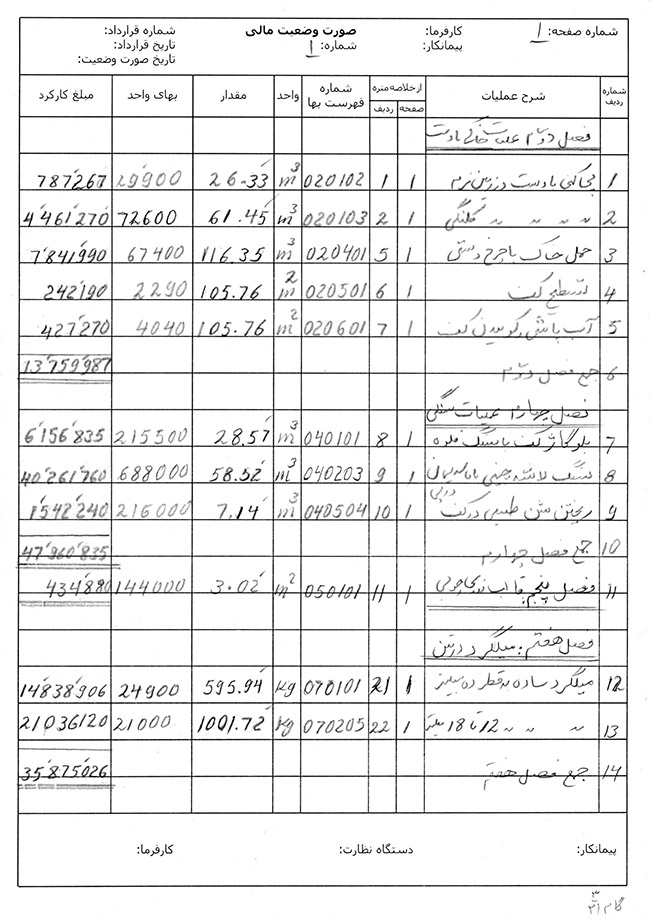 شماره صفحه: 1 کارفرما: صورت وضعیت مالی شماره قرارداد:
پیمانکار: شماره: 1 تاریخ قرارداد:
تاریخ صورت وضعیت:
شماره ردیف شرح عملیات از خلاصه متره صفحه ردیف شماره فهرست بها واحد مقدار بهای واحد مبلغ کارکرد
فصل دوم عملیات خاکی با دست
1 پی کنی با دست در زمین نرم 1 1 020102 m³ 26.33 29900 787'267
2 〃 〃 〃 〃 کلنگی 1 2 020103 m³ 61.45 72600 4'461'270
3 حمل خاک با چرخ دستی 1 5 020401 m³ 116.35 67400 7'841'990
4 تسطیح کف 1 6 020501 m² 105.76 2290 242'190
5 آب پاشی و کوبیدن کف 1 7 020601 m² 105.76 4040 427'270
6 جمع فصل دوم 13'759'987
فصل چهارم عملیات سنگی
7 بلوکاژ کف با سنگ قلوه 1 8 040101 m³ 28.57 215500 6'156'835
8 سنگ لاشه چینی با ماسه سیمان 1 9 040203 m³ 58.52 688000 40'261'760
9 ریختن شن طبیعی در کف 1 10 040504 m³ 7.14 216000 1'542'240
10 جمع فصل چهارم 47'960'835
11 فصل پنجم: قالب بندی چوبی 1 11 050101 m² 3.02 144000 434'880
فصل هفتم: میلگرد در بتن
12 میلگرد ساده به قطر ده میلیمتر 1 21 070101 kg 595.94 24900 14'838'906
13 〃 〃 〃 12 تا 18 میلیمتر 1 22 070205 kg 1001.72 21000 21'036'120
14 جمع فصل هفتم 35'875'026
پیمانکار: دستگاه نظارت: کارفرما: